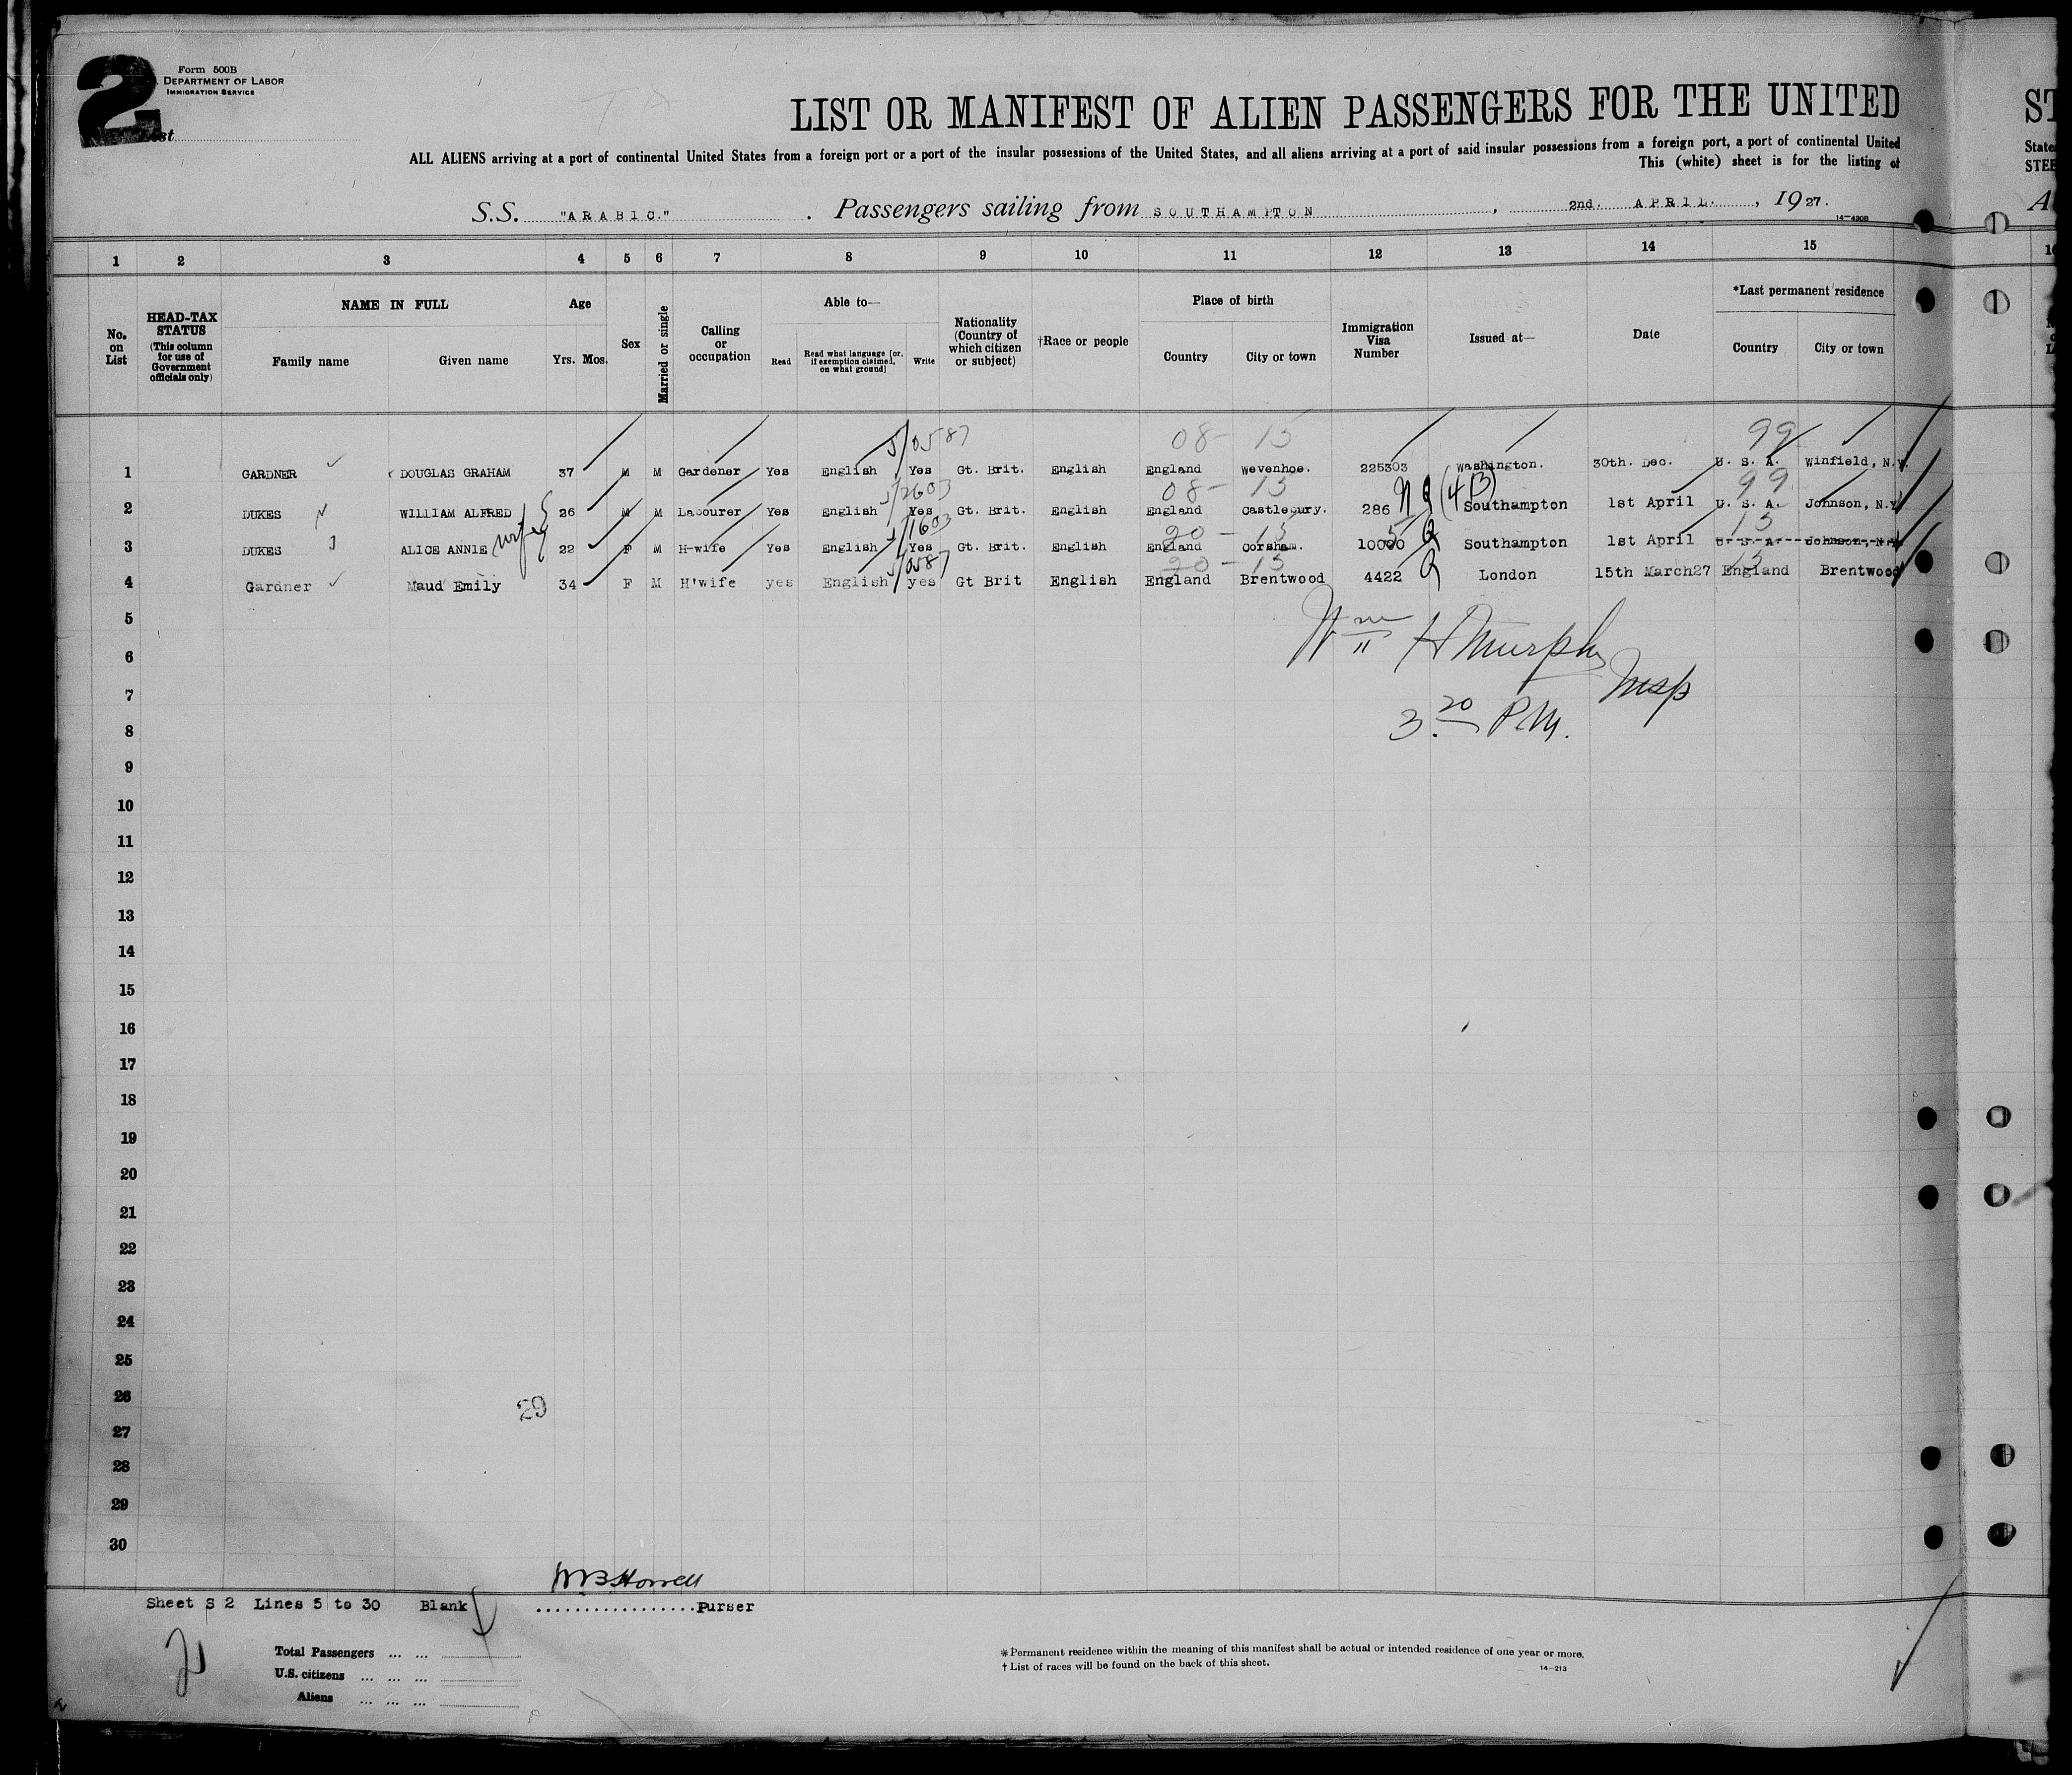 2
Form 500B
DEPARTMENT OF LABOR
IMMIGRATION SERVICE
List
LIST OR MANIFEST OF ALIEN PASSENGERS FOR THE UNITED
ALL ALIENS arriving at a port of continental United States from a foreign port or a port of the insular possessions of the United States, and all aliens arriving at a port of said insular possessions from a foreign port, a port of continental United
This (white) sheet is for the listing of
S.S. "ARABIC." Passengers sailing from SOUTHAMPTON, 2nd. APRIL., 1927.
14-430B
ST
States
STEE
A
1 2 3 4 5 6 7 8 9 10 11 12 13 14 15
No. on List
HEAD-TAX STATUS (This column for use of Government officials only)
NAME IN FULL
Family name Given name
Age
Yrs. Mos.
Sex
Married or single
Calling or occupation
Able to—
Read
Read what language [or, if exemption claimed, on what ground]
Write
Nationality (Country of which citizen or subject)
†Race or people
Place of birth
Country City or town
Immigration Visa Number
Issued at—
Date
*Last permanent residence
Country City or town
5/0587 08- 15 99
1 GARDNER DOUGLAS GRAHAM 37 M M Gardener Yes English Yes Gt. Brit. English England Wevenhoe. 225303 Washington. 30th. Dec. U. S. A. Winfield, N.Y.
5/2603 08- 15 99
2 DUKES WILLIAM ALFRED 26 M M Labourer Yes English Yes Gt. Brit. English England Castlebury. 286 (4B) Southampton 1st April U. S. A. Johnson, N.Y
1/1603 20-15 15
3 DUKES ALICE ANNIE wife 22 F M H-wife Yes English Yes Gt. Brit. English England Corsham. Southampton 1st April U. S. A. Johnson, N.Y
5/0587 20-15 15
4 Gardner Maud Emily 34 F M H'wife yes English yes Gt Brit English England Brentwood 4422 London 15th March27 England Brentwood
5
Wm H Murphy
6
Insp
7
3.20 P.M.
8
9
10
11
12
13
14
15
16
17
18
19
20
21
22
23
24
25
26
29
27
28
29
30
Sheet S 2 Lines 5 to 30 Blank
Purser
Total Passengers
U.S. citizens
Aliens
* Permanent residence within the meaning of this manifest shall be actual or intended residence of one year or more.
† List of races will be found on the back of this sheet.
14-213